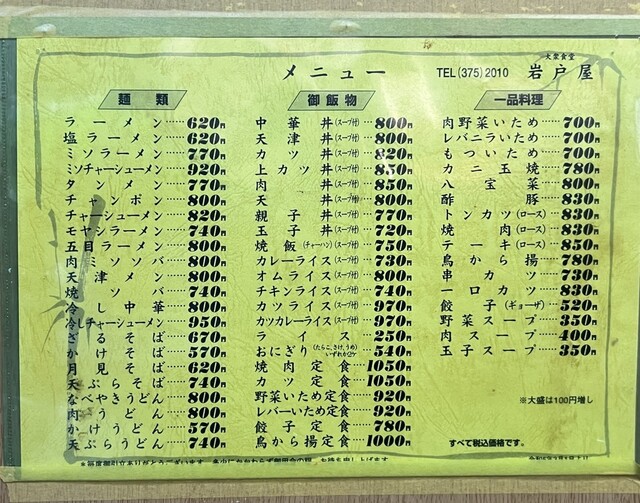 メニュー
TEL(375)2010
大衆食堂
岩戸屋
麺類
ラーメン……620円
塩ラーメン……620円
ミソラーメン……770円
ミソチャーシューメン……920円
タンメン……770円
チャンポン……800円
チャーシューメン……820円
モヤシラーメン……740円
五目ラーメン……800円
肉ミソソバ……800円
天津メン……800円
焼ソバ……740円
冷し中華……800円
冷しチャーシューメン……950円
ざるそば……670円
かけそば……570円
月見そば……620円
天ぷらそば……740円
なべやきうどん……800円
肉うどん……800円
かけうどん……570円
天ぷらうどん……740円
御飯物
中華丼(スープ付)……800円
天津丼(スープ付)……800円
カツ丼(スープ付)……820円
上カツ丼(スープ付)……850円
肉丼(スープ付)……850円
天丼(スープ付)……800円
親子丼(スープ付)……770円
玉子丼(スープ付)……720円
焼飯(チャーハン)(スープ付)……750円
カレーライス(スープ付)……730円
オムライス(スープ付)……800円
チキンライス(スープ付)……740円
カツライス(スープ付)……970円
カツカレーライス(スープ付)……970円
ライス……250円
おにぎり(たらこ、さけ、うめ)いずれか2ケ……540円
焼肉定食……1050円
カツ定食……1050円
野菜いため定食……920円
レバーいため定食……920円
餃子定食……780円
鳥から揚定食……1000円
一品料理
肉野菜いため……700円
レバニラいため……700円
もついため……700円
カニ玉焼……780円
八宝菜……800円
酢豚……830円
トンカツ(ロース)……830円
焼肉(ロース)……830円
テーキ(ロース)……850円
鳥から揚……780円
串カツ……730円
一口カツ……830円
餃子(ギョーザ)……520円
野菜スープ……350円
肉スープ……400円
玉子スープ……350円
※大盛は100円増し
すべて税込価格です。